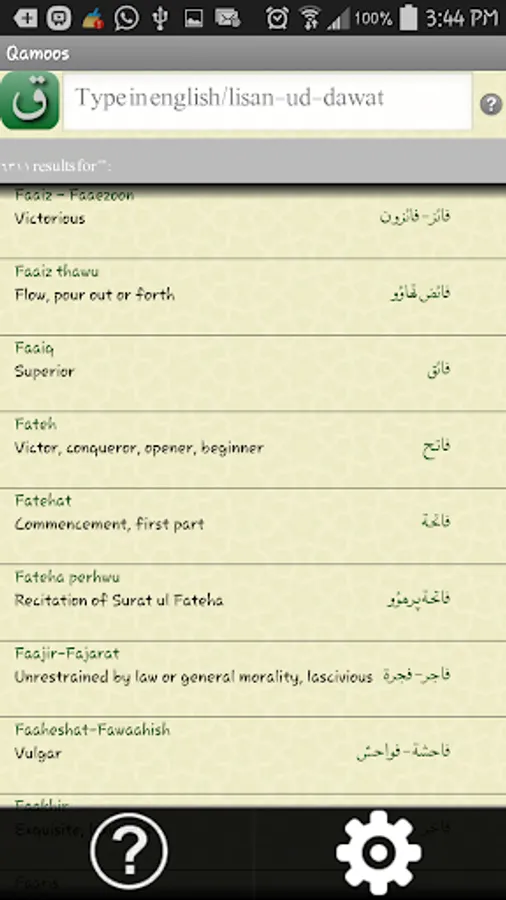 100% 3:44 PM
Qamoos
ق
Type in english/lisan-ud-dawat
?
١٣١١ results for"":
Faaiz - Faaezoon
Victorious فائز-فائزون
Faaiz thawu
Flow, pour out or forth فائض تھاوُو
Faaiq
Superior فائق
Fateh
Victor, conqueror, opener, beginner فاتح
Fatehat
Commencement, first part فاتحة
Fateha perhwu
Recitation of Surat ul Fateha فاتحة پرھوُو
Faajir-Fajarat
Unrestrained by law or general morality, lascivious فاجر-فجرة
Faaheshat-Fawaahish
Vulgar فاحشة-فواحش
Faakhir
Exquisite,
Faaris
?